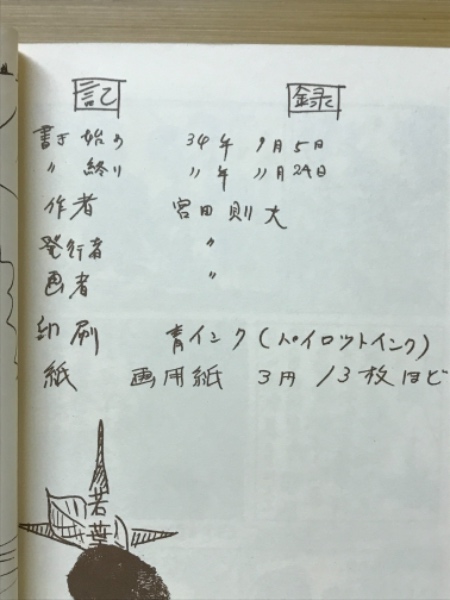 記 録
書き始め 34年 9月5日
〃 終り 〃年 〃月24日
作者 宮田則夫
発行者 〃
画者 〃
印刷 青インク(パイロットインク)
紙 画用紙 3円 13枚ほど
若葉